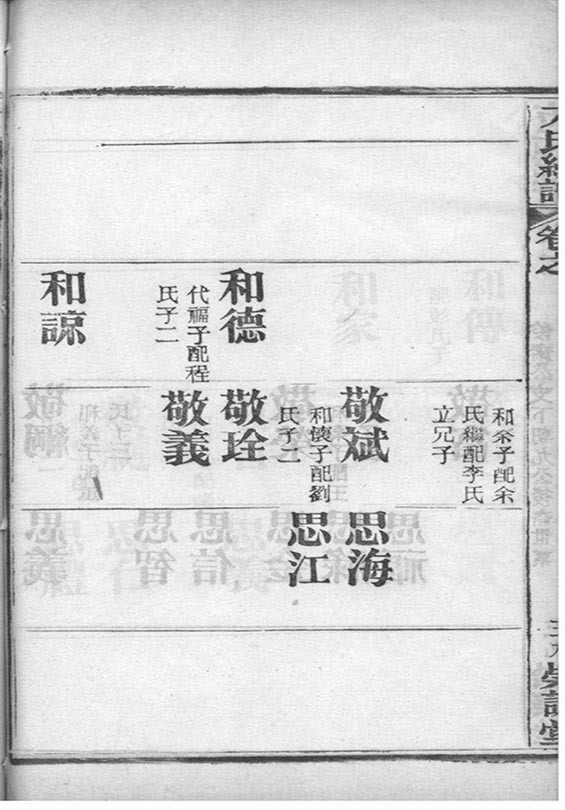 氏續譜
卷之
和德
代福子配程
氏子二
和諒
和汆子配余
氏繼配李氏
立兄子
敬斌
和懷子配劉
氏子二
敬銓
敬義
思海
思江